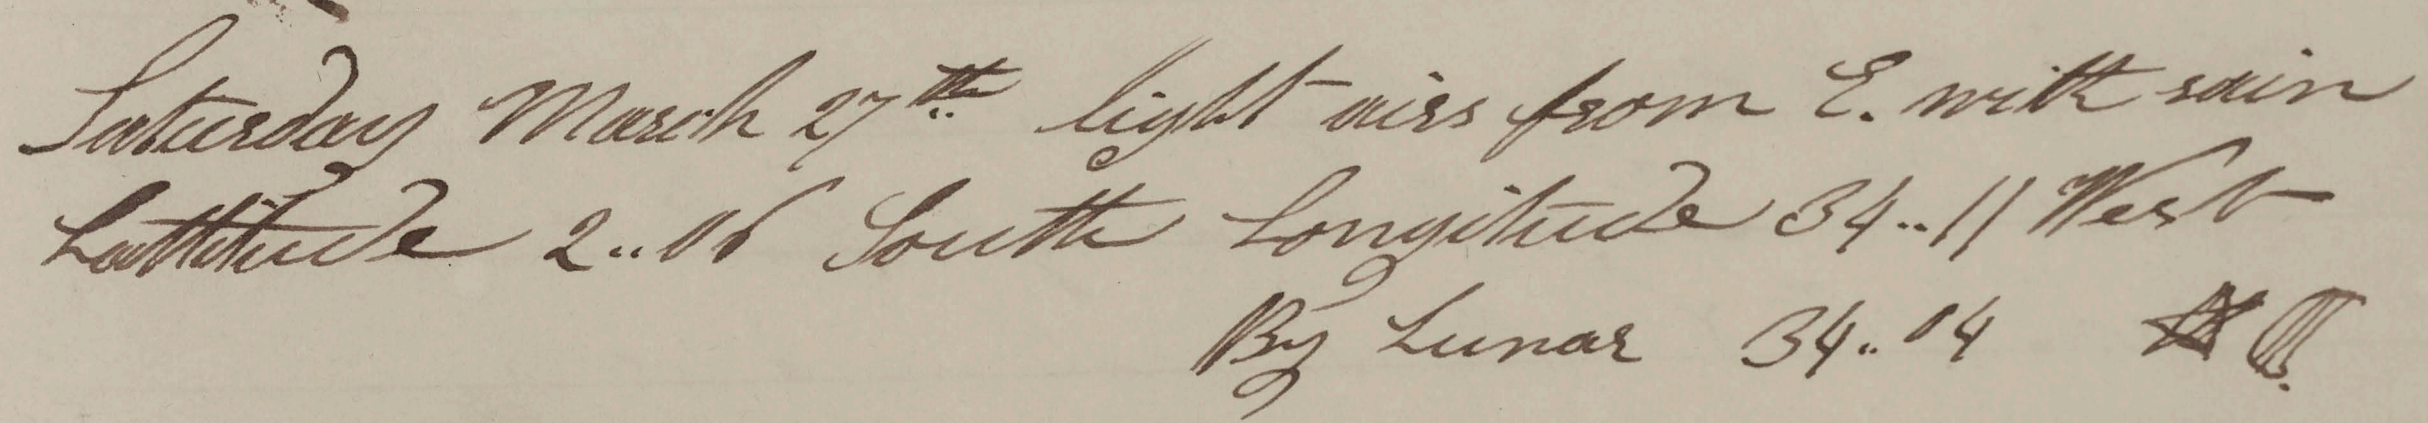 Saturday March 27th light airs from E. with rain
Lattitude 2..06 South Longitude 34..11 West
By Lunar 34..04